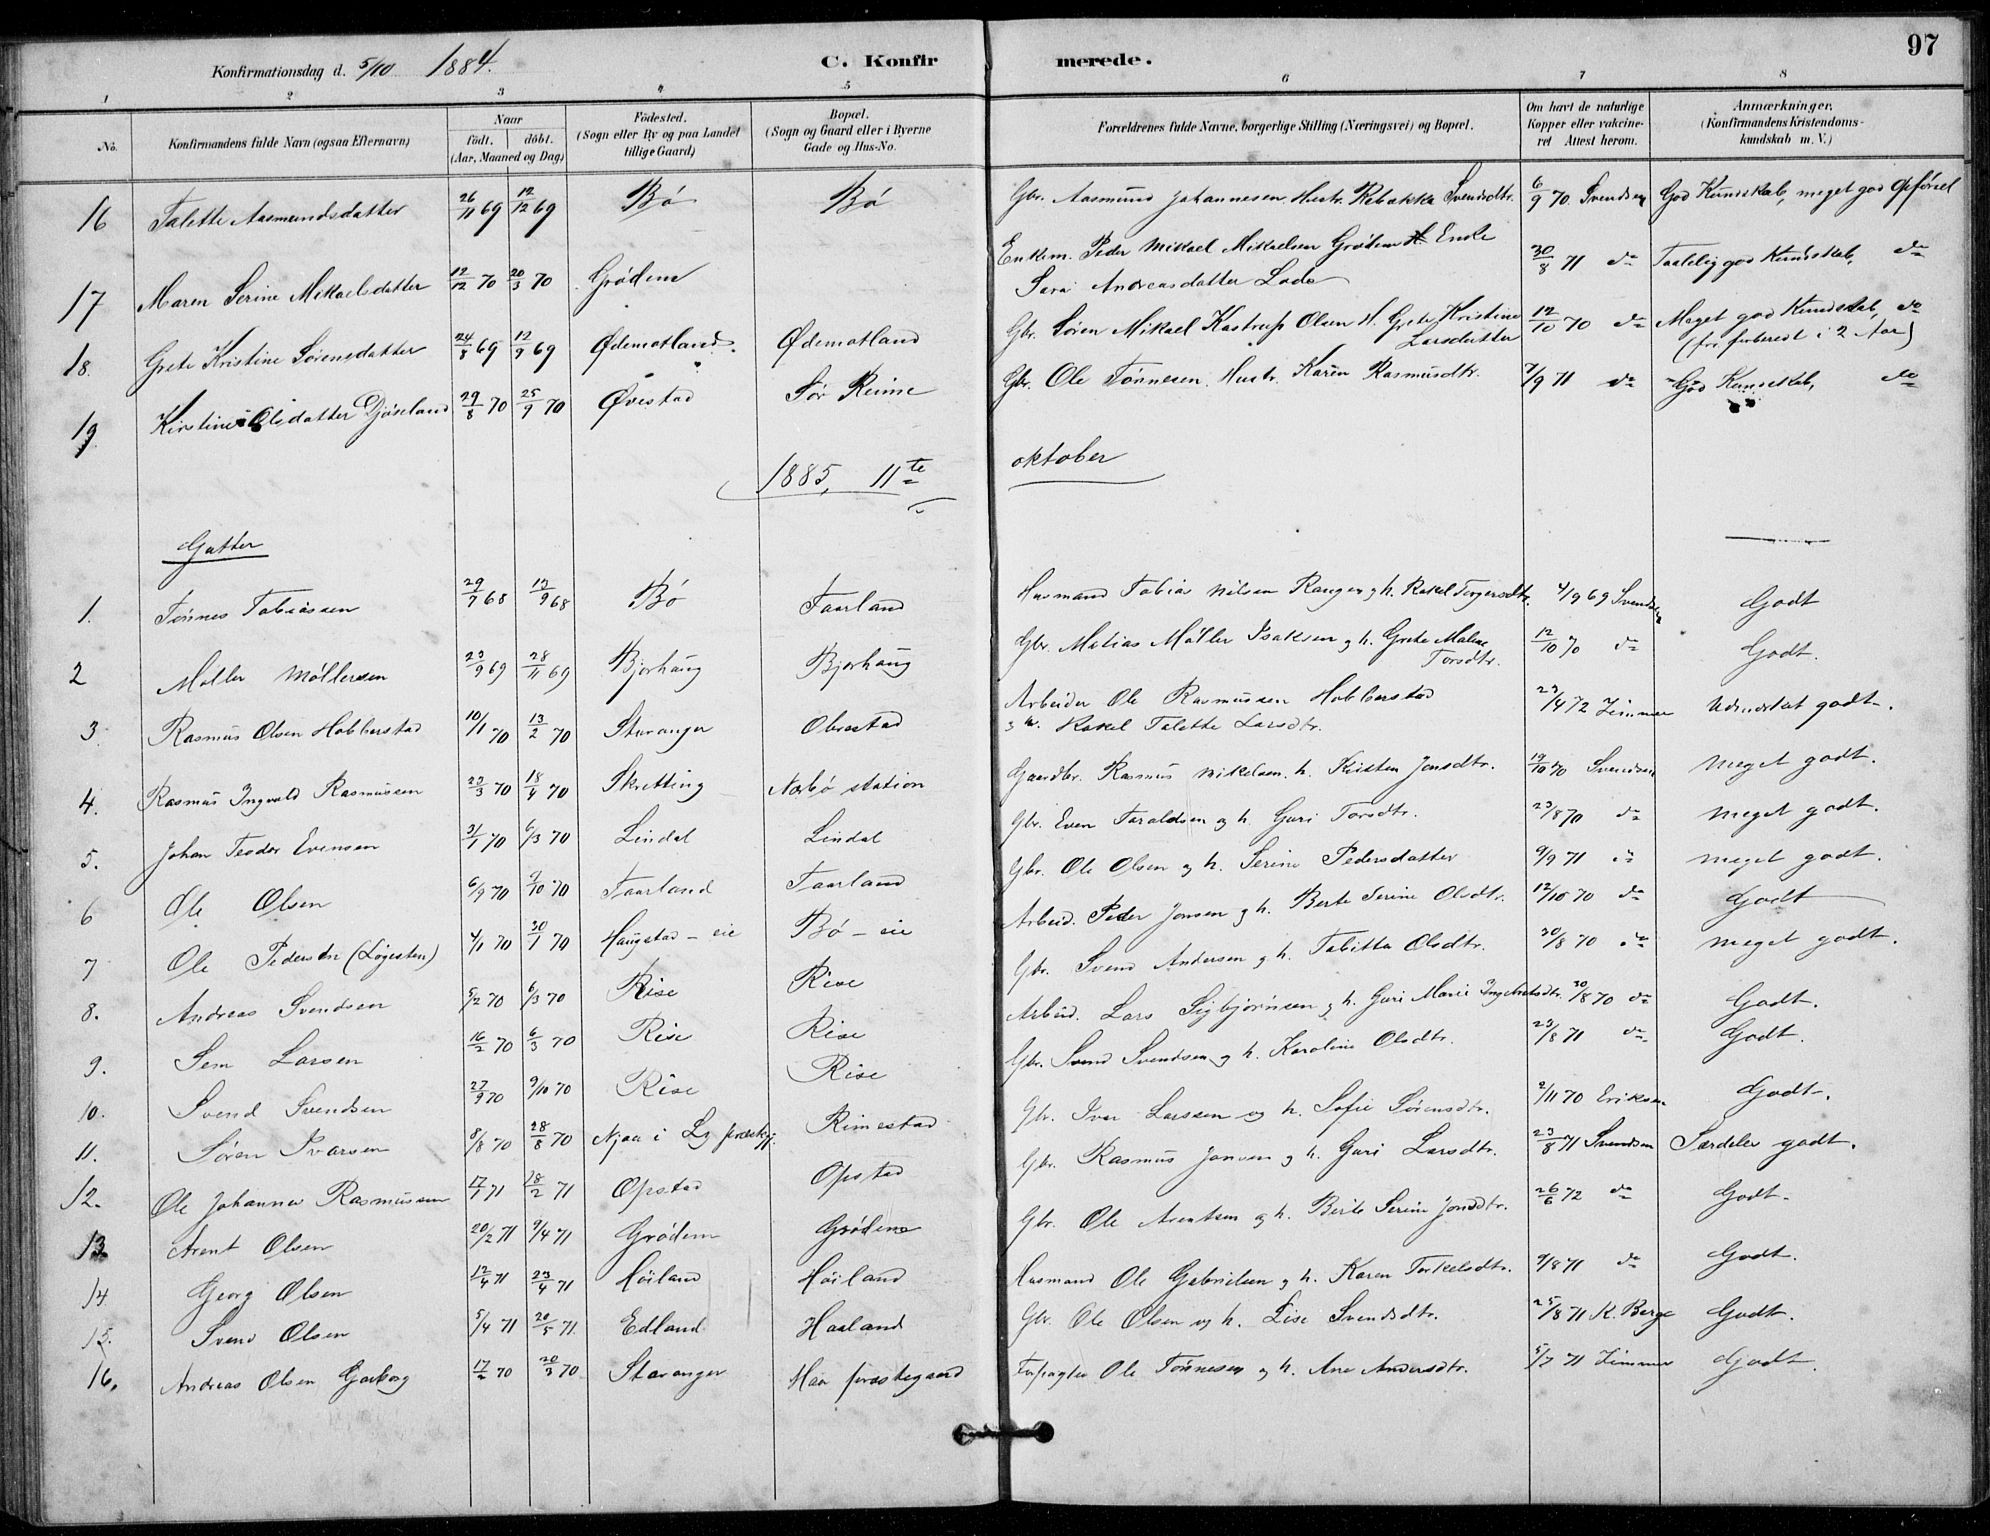 97
Konfirmationsdag d. 5/10 1884. C. Konfirmerede.
1 2 3 4 5 6 7 8
No. Konfirmandens fulde Navn (ogsaa Efternavn) Naar födt. döbt. (Aar, Maaned og Dag) Födested. (Sogn eller By og paa Landet tillige Gaard) Bopæl. (Sogn og Gaard eller i Byerne Gade og Hus-No. Forældrenes fulde Navne, borgerlige Stilling (Næringsvei) og Bopæl. Om havt de naturlige Kopper eller vakcineret Attest herom. Anmærkninger. (Konfirmandens Kristendomskundskab m. V.)
16 Talette Aasmundsdatter 26/11 69 12/12 69 Bø Bø Gbr. Aasmund Johannesen Hustr. Rebekka Svendsdtr. 6/9 70. Svendsen God Kundskab, meget god Opførsel
17 Maren Serine Mikaelsdatter 12/12 70 20/3 70 Grødem Enkem. Peder Mikael Mikaelsen Grødem Enke
Sara Andreasdatter Lode 30/8 71 do Taalelig god Kundskab, do
18. Grete Kristine Sørensdatter 24/8 69 12/9 69 Ødemotland. Ødemotland Gbr. Søren Mikael Kastrup Olsen H. Grete Kristine
Larsdatter 12/10 70 do Meget god Kundskab, do
(fri. forberedt i 2 Aar)
19 Kirstine Olsdatter Djøseland 29/8 70 25/9 70 Øvestad Sør Reime Gbr. Ole Tønnesen. Hustr. Karen Rasmusdtr. 7/9 71 do God Kundskab, do
1885, 11te oktober
Gutter
1. Tønnes Tobiassen 29/7 68 13/9 68 Bø Taarland Husmand Tobias Nilsen Rangen og h. Rakel Torgersdtr. 4/9 69 Svendsen Godt
2 Møller Møllersen 23/9 69 28/11 69 Bjorhaug Bjorhaug Gbr. Matias Møller Isaksen og h. Grete Malene
Torsdtr. 12/10 70 do Godt.
3. Rasmus Olsen Hobberstad 10/1 70 13/2 70 Stavanger Obrestad Arbeider Ole Rasmussen Hobberstad
og h. Rakel Talette Larsdtr. 23/4 72 Zimmer Udmærket godt.
4. Rasmus Ingvald Rasmussen 23/3 70 18/4 70 Skretting Nærbø station Gaardbr. Rasmus Mikelsen. h. Kristen Jonsdtr. 19/10 70 Svendsen meget godt.
5. Johan Teodor Evensen 31/1 70 6/3 70 Lindal Lindal Gbr. Even Taraldsen og h. Guri Torsdtr. 23/8 70 do meget godt.
6 Ole Olsen 6/9 70 2/10 70 Taarland Taarland Gbr. Ole Olsen og h. Serine Pedersdatter 9/9 71 do meget godt.
7 Ole Pedersen (Løgesten) 4/1 70 30/1 70 Haugstad - eie Bø - eie Arbeid. Peder Jonsen og h. Berte Serine Olsdtr. 12/10 70 do Godt
8. Andreas Svendsen 5/2 70 6/3 70 Rise Rise Gbr. Svend Andersen og h. Tabitta Olsdtr. 20/8 70 do meget godt.
9. Sem Larsen 16/2 70 6/3 70 Rise Rise Arbeid. Lars Sigbjørnsen og h. Guri Marie Ingebretsdtr. 20/8 70 do Godt.
10. Svend Svendsen 27/9 70 9/10 70 Rise Rise Gbr. Svend Svendsen og h. Karoline Olsdtr. 23/8 71 do Godt.
11. Søren Ivarsen 8/8 70 28/8 70 Njaa i Ly præstgj. Rimestad Gbr. Ivar Larssen og h. Sofie Sørensdtr. 2/11 70 Eriksen Godt.
12. Ole Johannes Rasmussen 17/1 71 18/2 71 Opstad Opstad Gbr. Rasmus Jonsen og h. Guri Larsdtr. 23/8 71 Svendsen Særdeles godt.
13 Arent Olsen 20/2 71 9/4 71 Grødem Grødem Gbr. Ole Arentsen og h. Berte Serine Jonsdtr. 26/6 72 do Godt.
14 Georg Olsen 12/4 71 23/4 71 Høiland Høiland Husmand Ole Gabrielsen og h. Karen Torkelsdtr. 9/8 71 do Godt.
15. Svend Olsen 5/4 71 20/5 71. Edland Haaland Gbr. Ole Olsen og h. Lise Svendsdtr. 25/8 71 K. Berge Godt.
16. Andreas Olsen Garborg 17/2 70 20/3 70 Stavanger Haa præstegaard Forpagter Ole Tønnesen og h. Ane Andersdtr. 5/7 71 Zimmer Godt.